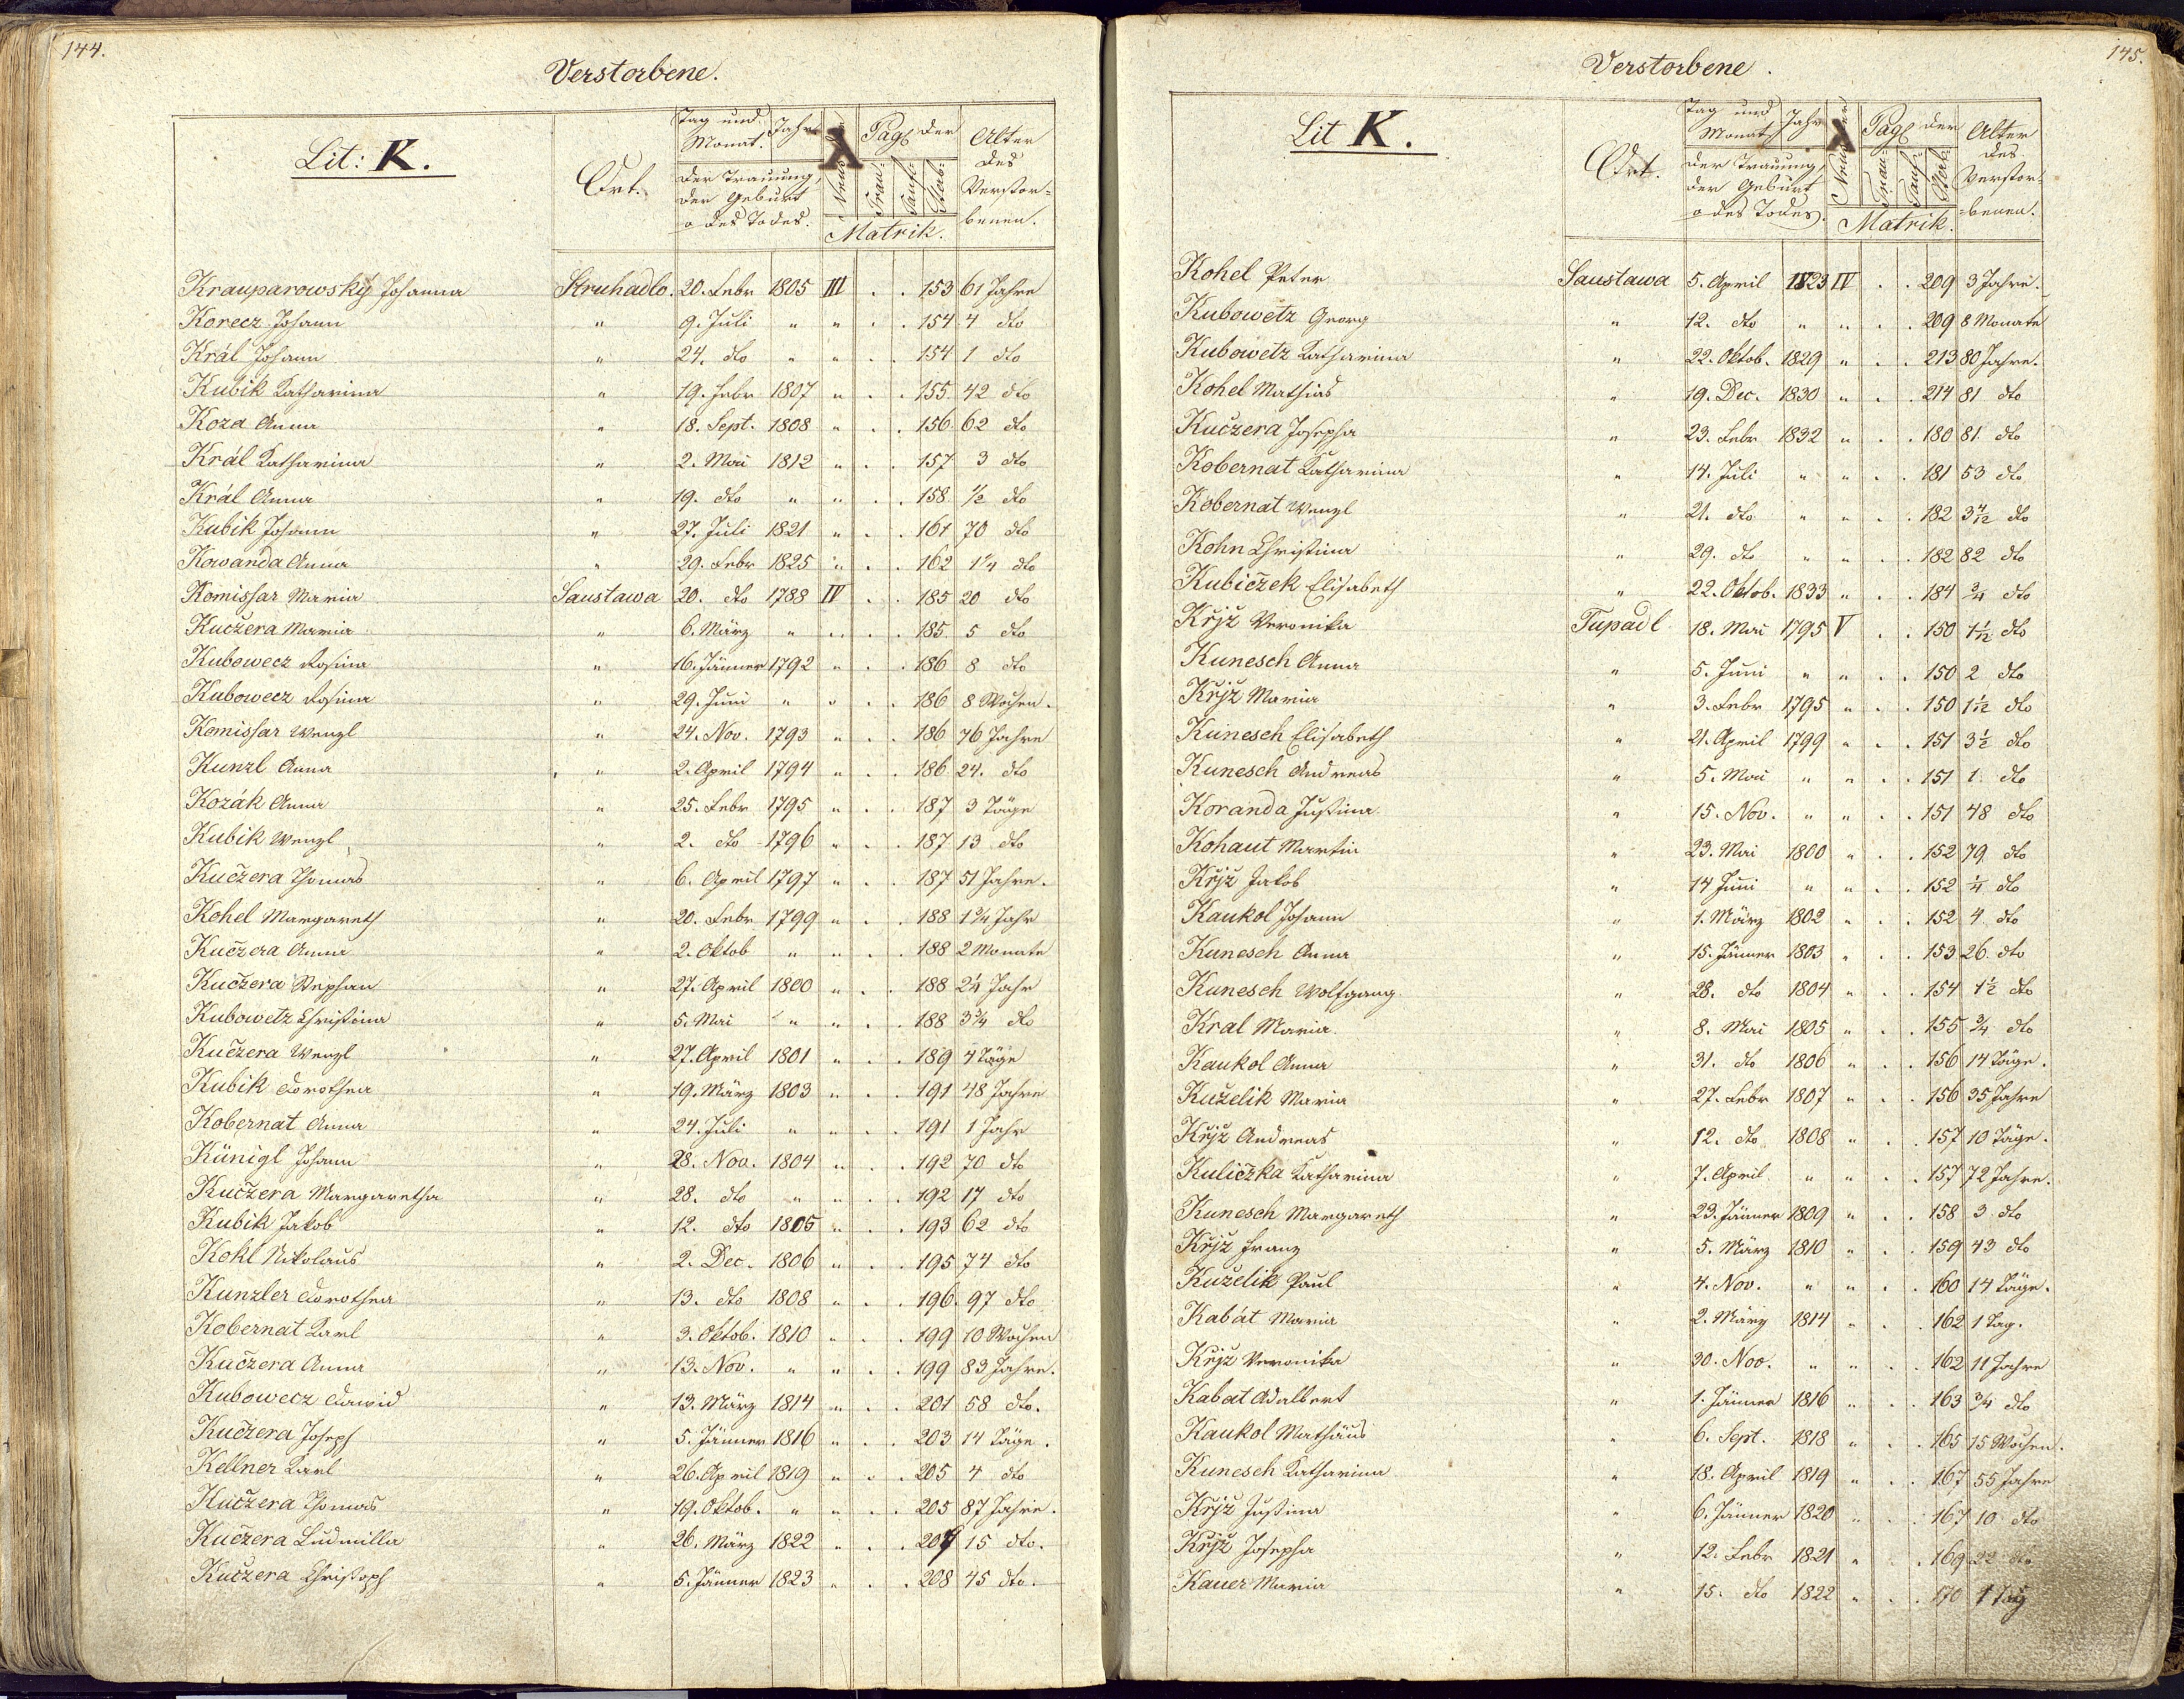 144.
Verstorbene.
Lit: K.
Ort.
Tag und Monat. Jahr
der Trauung, der Geburt o des Todes.
Pag. der
Trau Tauf Sterb
Matrik.
Alter des Verstorbenen.
Krauparowský Johanna Struhadlo. 20. Febr 1805 III . . 153 61 Jahre
Korecz Johann " 9. Juli " " . . 154 4 dto
Král Johann " 24. dto " " . . 154 1 dto
Kubik Katharina " 19. Febr 1807 " . . 155 42 dto
Koza Anna " 18. Sept. 1808 " . . 156 62 dto
Král Katharina " 2. Mai 1812 " . . 157 3 dto
Král Anna " 19. dto " " . . 158 1/2 dto
Kubik Johann " 27. Juli 1821 " . . 161 70 dto
Kowanda Anna " 29. Febr 1825 " . . 162 1 1/4 dto
Komissar Maria Saustawa 20. dto 1788 IV . . 185 20 dto
Kuczera Maria " 6. März " " . . 185 5 dto
Kubowecz Rosina " 16. Jänner 1792 " . . 186 8 dto
Kubowecz Rosina " 29. Juni " " . . 186 8 Wochen.
Komissar Wenzl " 24. Nov. 1793 " . . 186 76 Jahre
Kunzl Anna " 2. April 1794 " . . 186 24. dto
Kozák Anna " 25. Febr 1795 " . . 187 3 Täge
Kubik Wenzl " 2. dto 1796 " . . 187 13 dto
Kuczera Thomas " 6. April 1797 " . . 187 51 Jahre.
Kohel Margareth " 20. Febr 1799 " . . 188 1 3/4 Jahr
Kuczera Anna " 2. Oktob " " . . 188 2 Monate
Kuczera Stephan " 27. April 1800 " . . 188 2 1/4 Jahr
Kubowetz Christina " 5. Mai " " . . 188 3 3/4 dto
Kuczera Wenzl " 27. April 1801 " . . 189 4 Täge
Kubik Dorothea " 19. März 1803 " . . 191 48 Jahre
Kobernat Anna " 24. Juli " " . . 191 1 Jahr
Künigl Johann " 28. Nov. 1804 " . . 192 70 dto
Kuczera Margaretha " 28. dto " " . . 192 17 dto
Kubik Jakob " 12. dto 1805 " . . 193 62 dto
Kohl Nikolaus " 2. Dec. 1806 " . . 195 74 dto
Kunzler Dorothea " 13. dto 1808 " . . 196. 97 dto
Kobernat Karl " 3. Oktob. 1810 " . . 199 10 Wochen
Kuczera Anna " 13. Nov. " " . . 199 83 Jahre.
Kubowecz David " 13. März 1814 " . . 201 58 dto.
Kuczera Joseph " 5. Jänner 1816 " . . 203 14 Täge.
Kellner Karl " 26. April 1819 " . . 205 4 dto
Kuczera Thomas " 19. Oktob. " " . . 205 87 Jahre.
Kuczera Ludmilla " 26. März 1822 " . . 207 15 dto.
Kuczera Christoph " 5. Jänner 1823 " . . 208 45 dto.
145.
Verstorbene.
Lit K.
Ort.
Tag und Monat Jahr
der Trauung, der Geburt o des Todes.
Pag. der
Trau Tauf Sterb
Matrik.
Alter des Verstorbenen.
Kohel Peter Saustawa 5. April 1823 IV . . 209 3 Jahre.
Kubowetz Georg " 12. dto " " . . 209 8 Monate
Kubowetz Katharina " 22. Oktob. 1829 " . . 213 80 Jahre.
Kohel Mathias " 19. Dec. 1830 " . . 214 81 dto
Kuczera Josepha " 23. Febr 1832 " . . 180 81 dto
Kobernat Katharina " 14. Juli " " . . 181 53 dto
Kobernat Wenzl " 21. dto " " . . 182 3 4/12 dto
Kohn Christina " 29. dto " " . . 182 82 dto
Kubiczek Elisabeth " 22. Oktob. 1833 " . . 184 3/4 dto
Krjž Veronika Tupadl 18. Mai 1795 V . . 150 1 1/12 dto
Kunesch Anna " 5. Juni " " . . 150 2 dto
Krjž Maria " 3. Febr 1795 " . . 150 1 1/2 dto
Kunesch Elisabeth " 21. April 1799 " . . 151 3 1/2 dto
Kunesch Andreas " 5. Mai " " . . 151 1. dto
Koranda Justina " 15. Nov. " " . . 151 48 dto
Kohaut Martin " 23. Mai 1800 " . . 152 79 dto
Krjž Jakob " 14 Juni " " . . 152 1/4 dto
Kaukol Johann " 1. März 1802 " . . 152 4 dto
Kunesch Anna " 15. Jänner 1803 " . . 153 26 dto
Kunesch Wolfgang " 28. dto 1804 " . . 154 1 1/2 dto
Kral Maria " 8. Mai 1805 " . . 155 3/4 dto
Kaukol Anna " 31. dto 1806 " . . 156 14 Täge.
Kuželik Maria " 27. Febr 1807 " . . 156 35 Jahre
Krjž Andreas " 12. dto 1808 " . . 157 10 Täge.
Kuliczka Katharina " 7. April " " . . 157 72 Jahre.
Kunesch Margareth " 23. Jänner 1809 " . . 158 3 dto
Krjž Franz " 5. März 1810 " . . 159 43 dto
Kuželik Paul " 4. Nov. " " . . 160 14 Täge.
Kabát Maria " 2. März 1814 " . . 162 1 Tag.
Krjž Veronika " 30. Nov. " " . . 162 11 Jahre
Kabat Adalbert " 1. Jänner 1816 " . . 163 3/4 dto
Kaukol Mathäus " 6. Sept. 1818 " . . 165 15 Wochen.
Kunesch Katharina " 18. April 1819 " . . 167 55 Jahre
Krjž Justina " 6. Jänner 1820 " . . 167 10 dto
Krjž Josepha " 12. Febr 1821 " . . 169 22 dto
Kauer Maria " 15. dto 1822 " . . 170 1 Tag